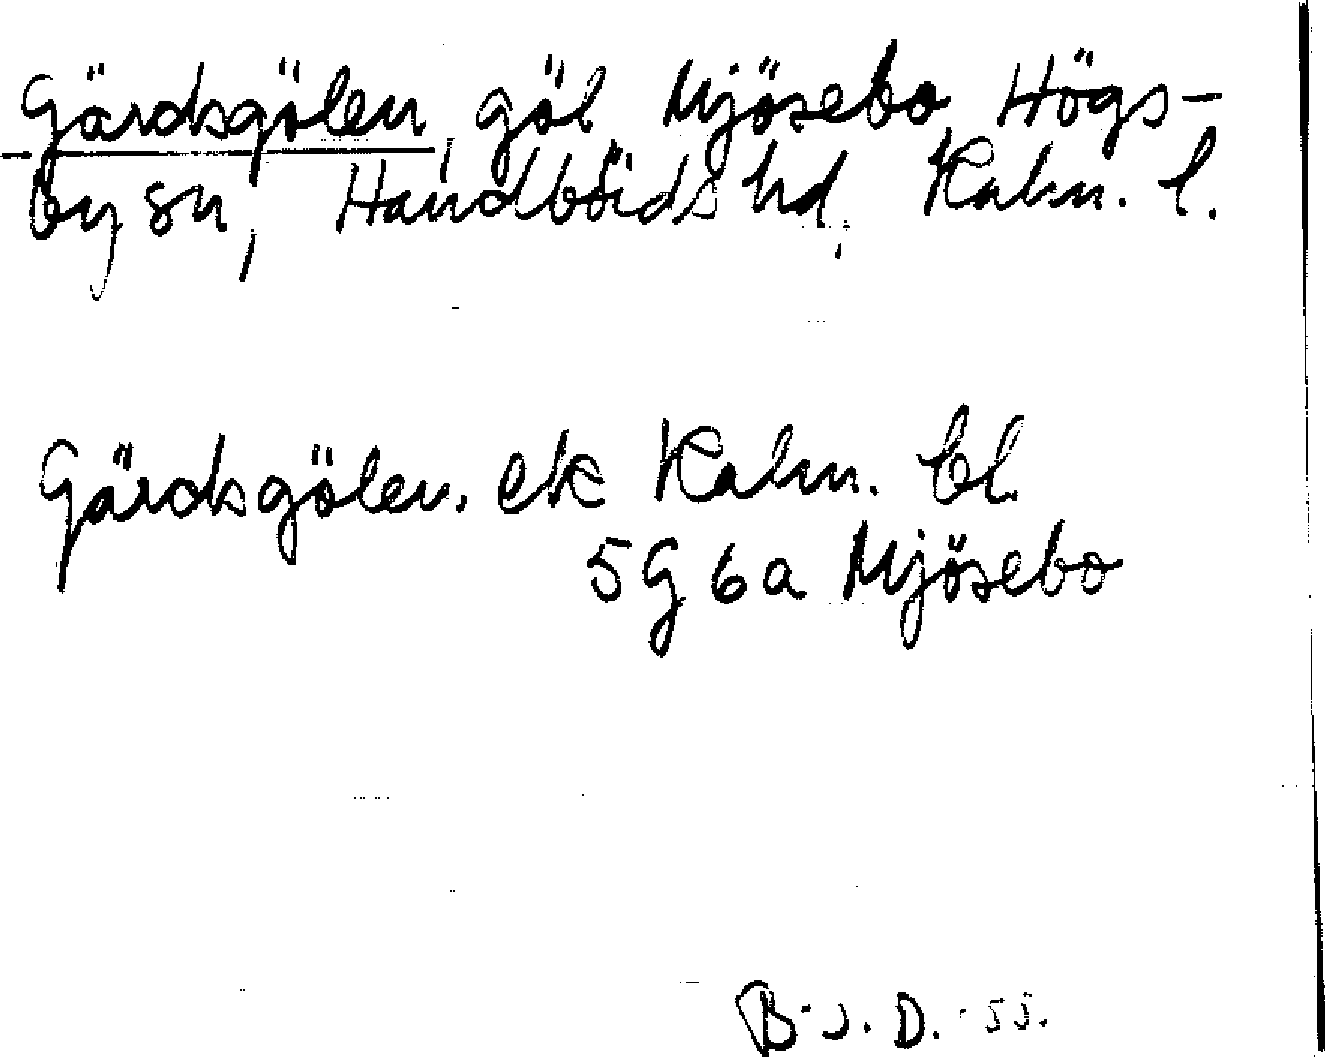 Gärdsgölen, göl Mjösebo Högs-
by sn, Handbörds hd, Kalm. l.
Gärdsgölen. ek Kalm. bl.
5G 6a Mjösebo
B. J. D. 55.